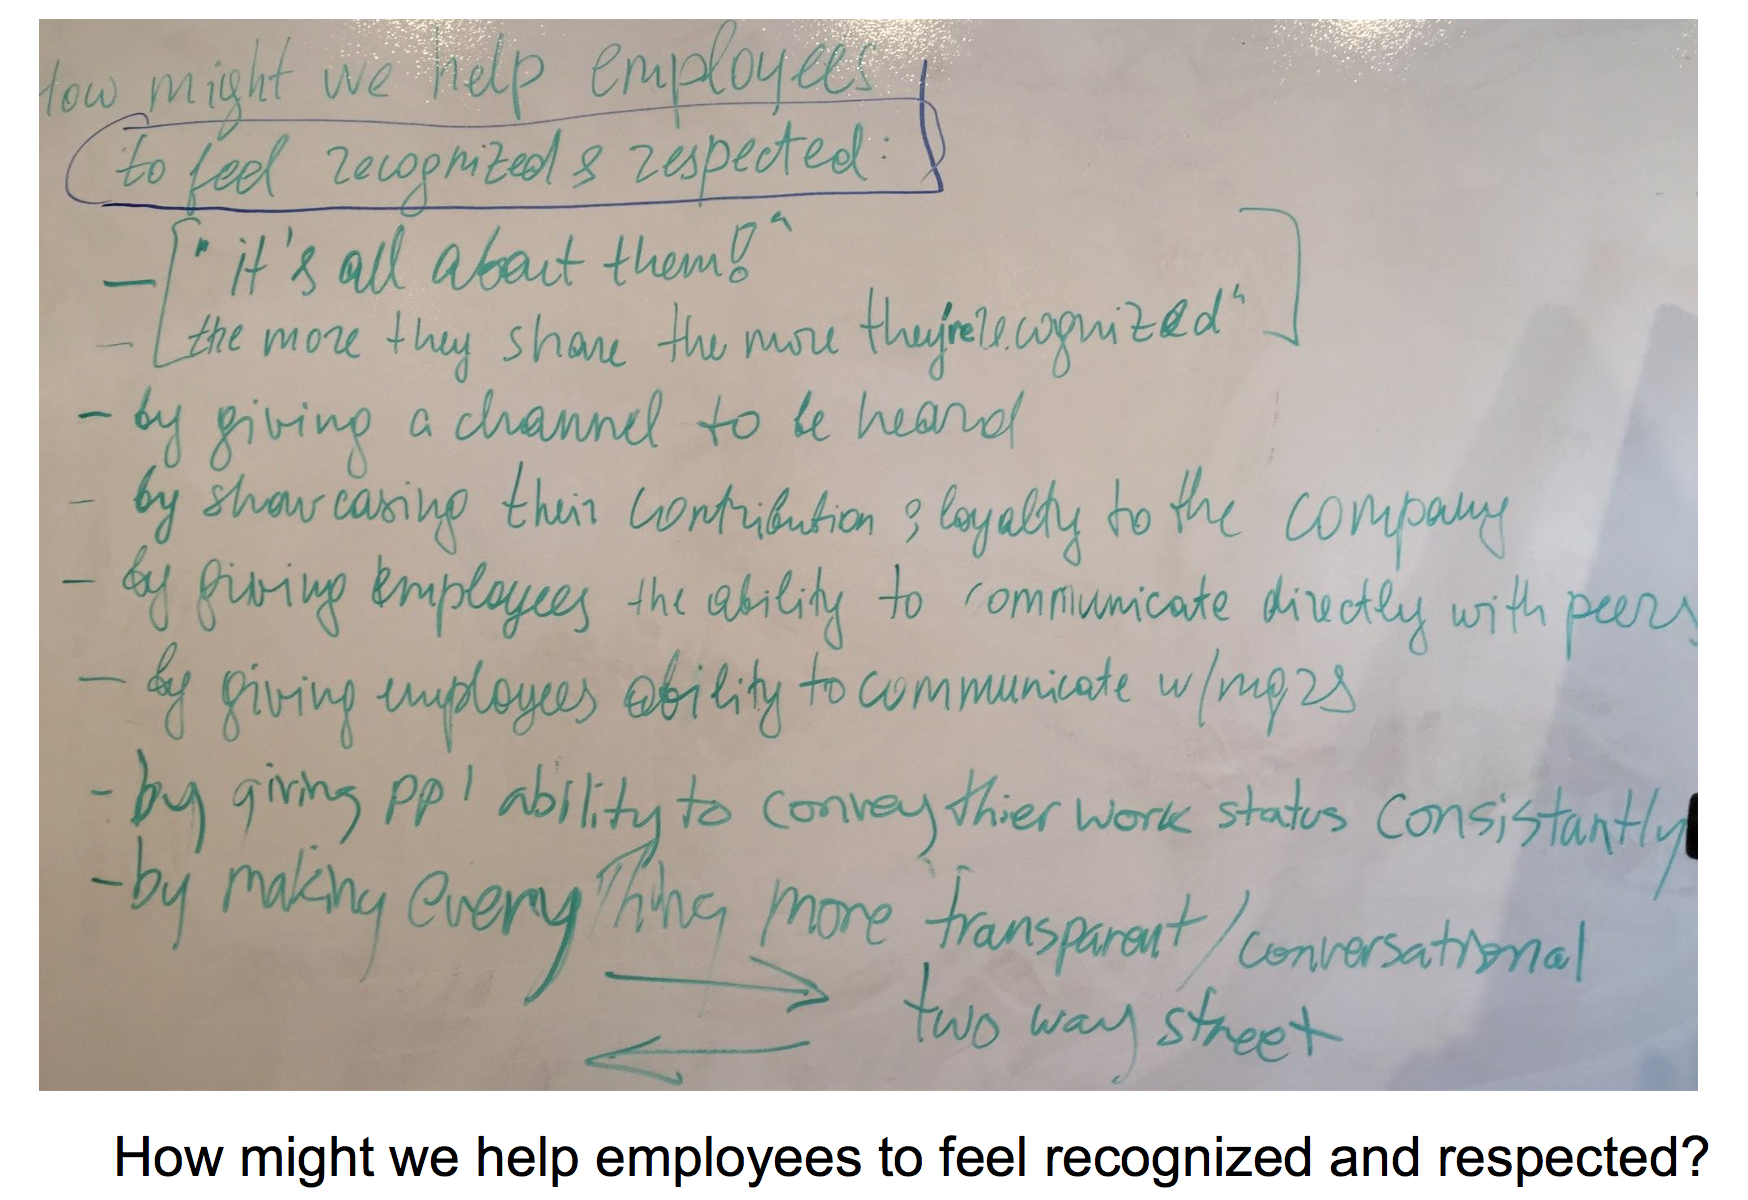 How might we help employees
to feel recognized & respected:
- "it's all about them!"
- the more they share the more they're recognized"
- by giving a channel to be heard
- by showcasing their contribution & loyalty to the company
- by giving employees the ability to communicate directly with peers
- by giving employees ability to communicate w/mgrs
- by giving ppl ability to convey thier work status consistantly
- by making everything more transparent/conversational
two way street
How might we help employees to feel recognized and respected?